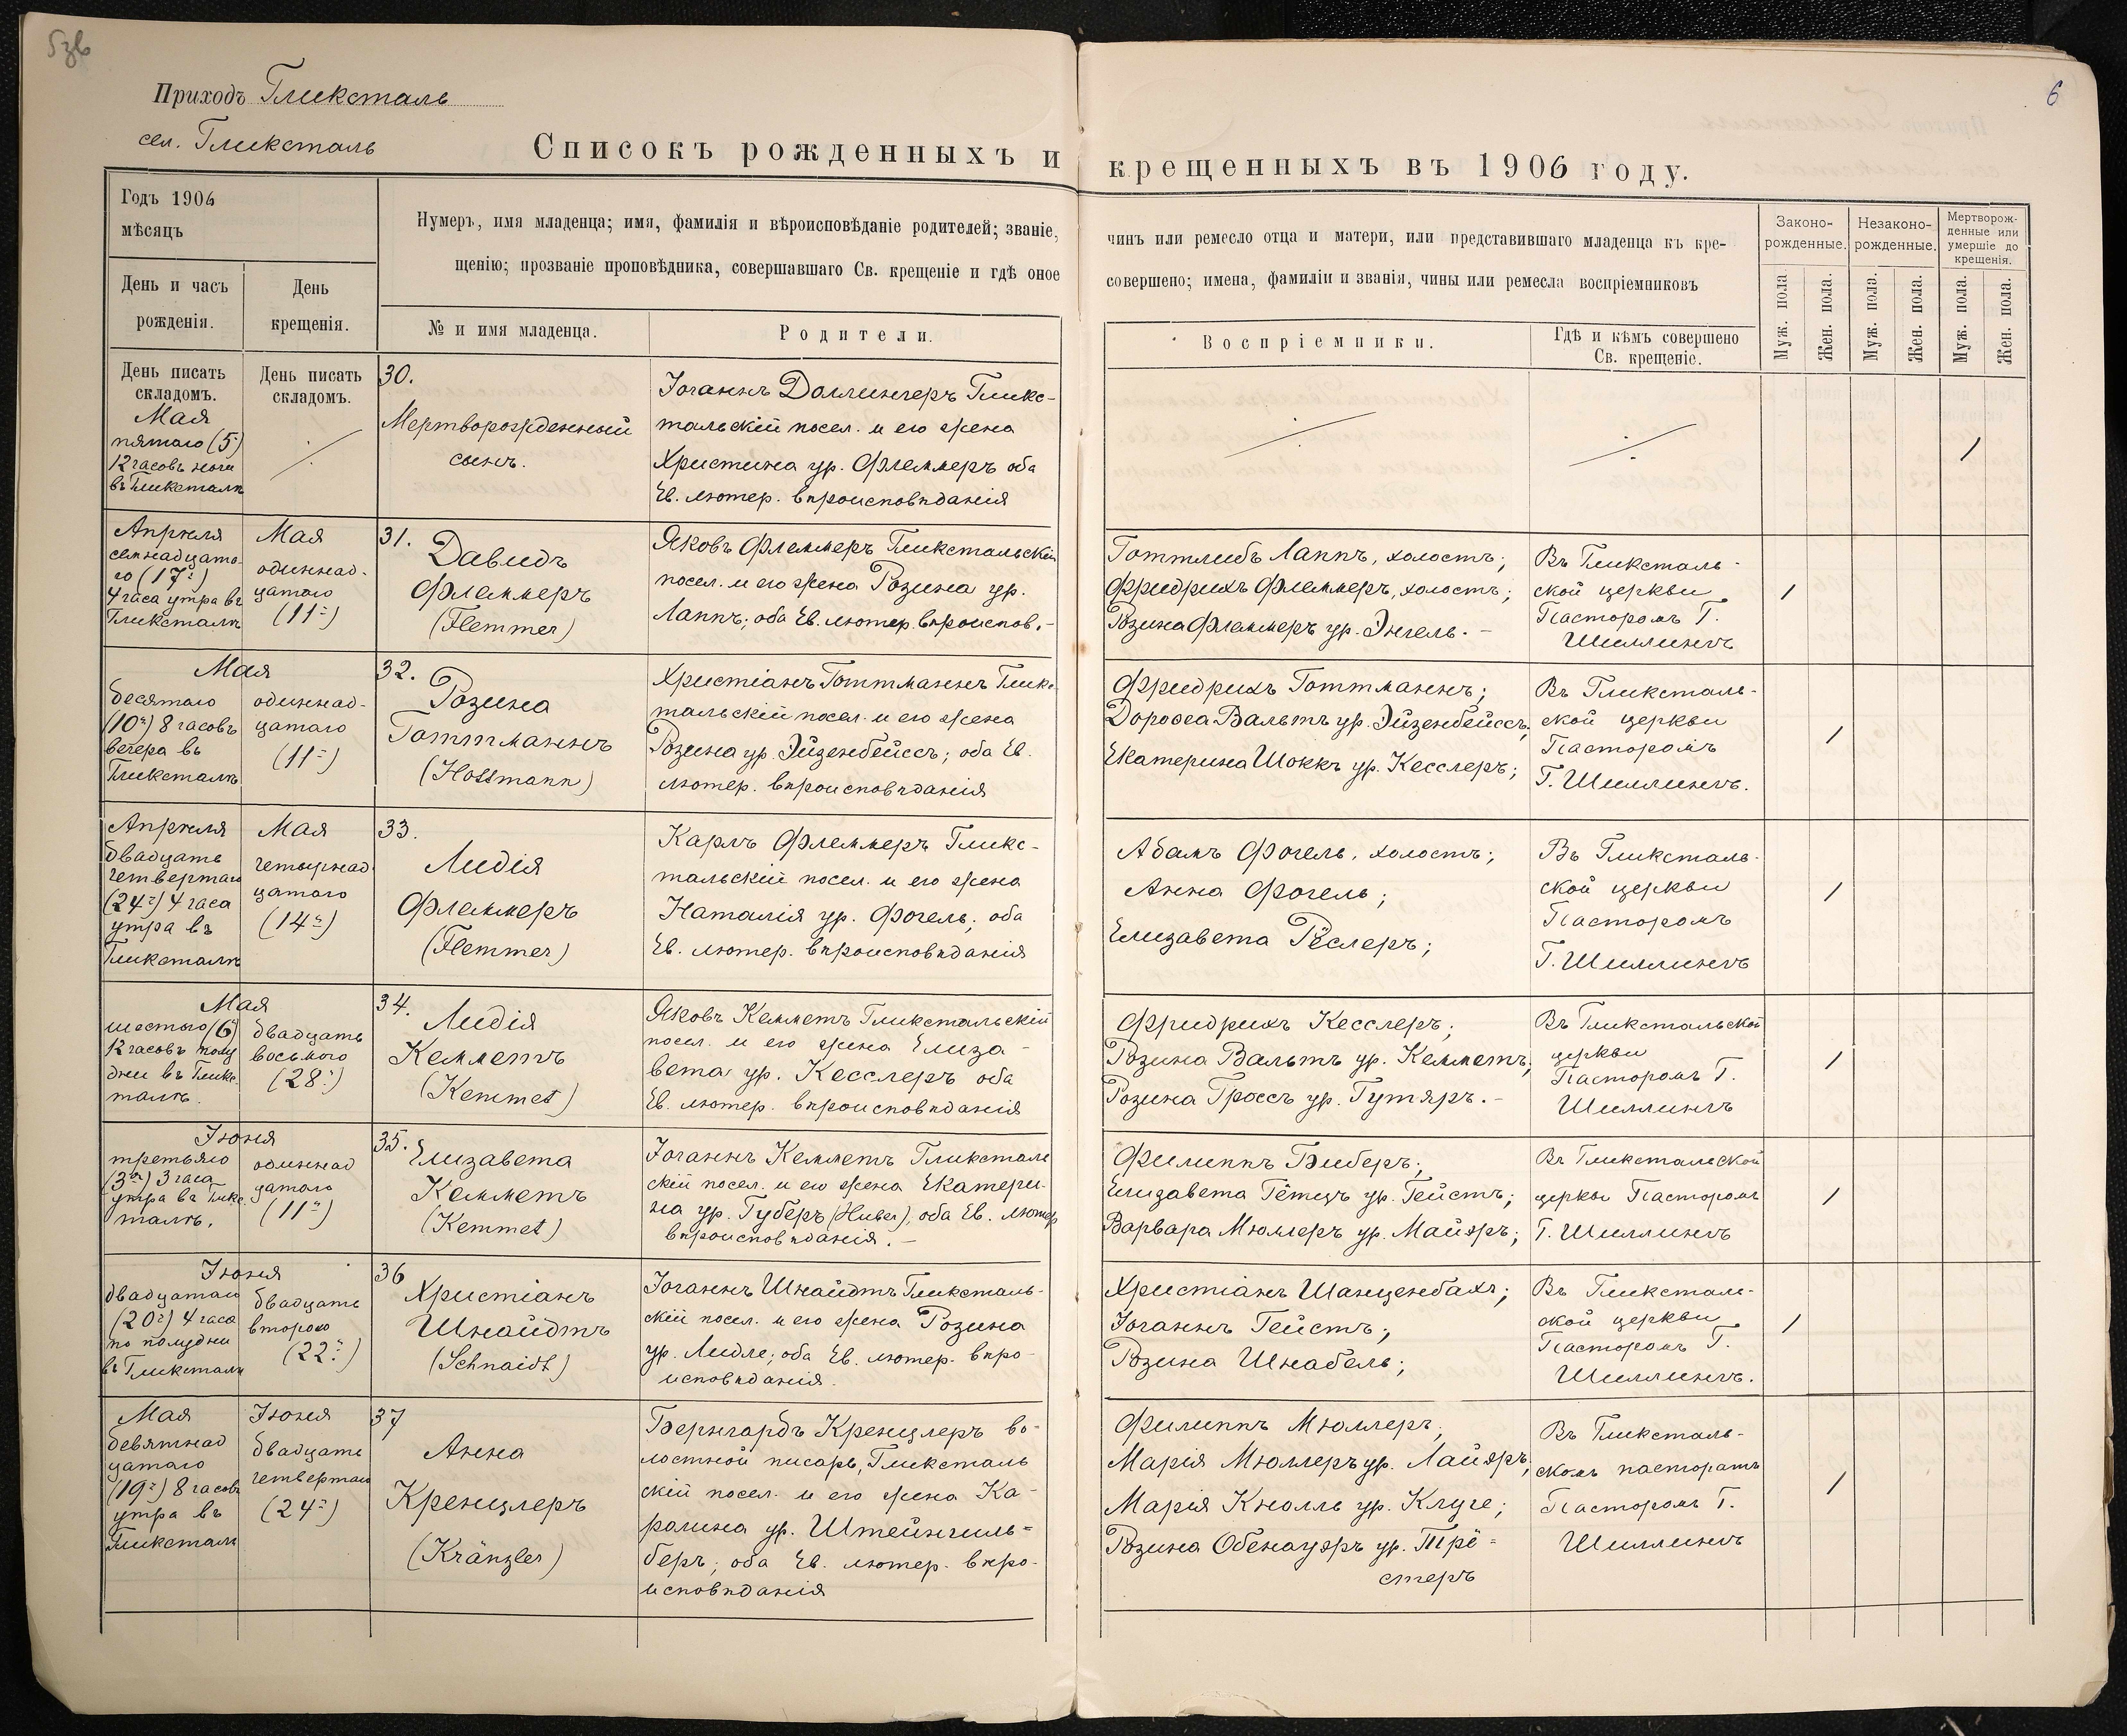 5зв
6
Приходъ Гликсталь
сел. Гликсталь
Списокъ рожденныхъ и крещенныхъ въ 1906 году.
Годъ 1906
мѣсяцъ
День и часъ
рожденія.
День
крещенія.
Нумеръ, имя младенца; имя, фамилія и вѣроисповѣданіе родителей; званіе, чинъ или ремесло отца и матери, или представившаго младенца къ кре-
щенію; прозваніе проповѣдника, совершавшаго Св. крещеніе и гдѣ оное совершено; имена, фамиліи и званія, чины или ремесла воспріемниковъ
№ и имя младенца.
Родители.
Воспріемники.
Гдѣ и кѣмъ совершено
Св. крещеніе.
Законо-
рожденные.
Незаконо-
рожденные.
Мертворож-
денные или
умершіе до
крещенія.
Муж. пола
Жен. пола.
Муж. пола.
Жен. пола.
Муж. пола.
Жен. пола.
День писать
складомъ.
День писать
складомъ.
Мая
пятаго (5)
12 часовъ ночи
въ Гликсталѣ
30.
Мертворожденный
сынъ.
Іоганнъ Доллингеръ Гликс-
тальскій посел. и его жена
Христина ур. Флеммеръ оба
Ев. лютер. вѣроисповѣданія
1
Апрѣля
семнадцата-
го (17-)
4 часа утра въ
Гликсталѣ
Мая
одиннад-
цатаго
(11-)
31.
Давидъ
Флеммеръ
(Flemmer)
Яковъ Флеммеръ Гликстальскій
посел. и его жена Розина ур.
Лаппъ; оба Ев. лютер. вѣроиспов.-
Готтлибъ Лаппъ, холостъ;
Фридрихъ Флеммеръ, холостъ;
Розина Флеммеръ ур. Энгель. -
Въ Гликсталь-
ской церкви
Пасторомъ Г.
Шиллингъ
1
Мая
десятаго
(10-) 8 часовъ
вечера въ
Гликсталѣ
одиннад-
цатаго
(11-)
32.
Розина
Готтманнъ
(Hottmann)
Христіанъ Готтманнъ Гликс-
тальскій посел. и его жена
Розина ур. Эйзенбейссъ; оба Ев.
лютер. вѣроисповѣданія
Фридрихъ Готтманнъ;
Доровеа Вальтъ ур. Эйзенбейссъ;
Екатерина Шоккъ ур. Кесслеръ;
Въ Гликсталь-
ской церкви
Пасторомъ
Г. Шиллингъ.
1
Апрѣля
двадцать
четвертаго
(24-) 4 часа
утра въ
Гликсталѣ
Мая
четырнад-
цатаго
(14-)
33.
Лидія
Флеммеръ
(Flemmer)
Карлъ Флеммеръ Гликс-
тальскій посел. и его жена
Наталія ур. Фогель; оба
Ев. лютер. вѣроисповѣданія
Адамъ Фогель, холостъ;
Анна Фогель;
Елизавета Рёслеръ;
Въ Гликсталь-
ской церкви
Пасторомъ
Г. Шиллингъ
1
Мая
шестого (6)
12 часовъ полу
дни въ Гликс-
талѣ.
двадцать
восьмого
(28-)
34.
Лидія
Кемметъ
(Kemmet)
Яковъ Кемметъ Гликстальскій
посел. и его жена Елиза-
вета ур. Кесслеръ оба
Ев. лютер. вѣроисповѣданія
Фридрихъ Кесслеръ;
Розина Вальтъ ур. Кемметъ;
Розина Гроссъ ур. Гутяръ. -
Въ Гликстальской
церкви
Пасторомъ Г.
Шиллингъ
1
Іюня
третьяго
(3-) 3 часа
утра въ Гликс
талѣ.
одиннад
цатаго
(11-)
35.
Елизавета
Кемметъ
(Kemmet)
Іоганнъ Кемметъ Гликсталь
скій посел. и его жена Екатери-
на ур. Губеръ (Huber), оба Ев. лютер
вѣроисповѣданія. -
Филиппъ Биберъ;
Елизавета Гётцъ ур. Гейстъ;
Варвара Мюллеръ ур. Майэръ;
Въ Гликстальской
церкви Пасторомъ
Г. Шиллингъ
1
Іюня
двадцатаго
(20-) 4 часа
по полудни
въ Гликсталѣ
двадцать
второго
(22-)
36
Христіанъ
Шнайдтъ
(Schnaidt)
Іоганнъ Шнайдтъ Гликсталь-
скій посел. и его жена Розина
ур. Лидле; оба Ев. лютер. вѣро-
исповѣданія.
Христіанъ Шанценбахъ;
Іоганнъ Гейстъ;
Розина Шнабель;
Въ Гликсталь-
ской церкви
Пасторомъ Г.
Шиллингъ.
1
Мая
девятнад
цатаго
(19-) 8 часовъ
утра въ
Гликсталѣ
Іюня
двадцать
четвертаго
(24-)
37
Анна
Кренцлеръ
(Kränzler)
Бернгардъ Кренцлеръ во-
лостной писарь, Гликсталь
скій посел. и его жена Ка-
ролина ур. Штейнгиль-
беръ; оба Ев. лютер. вѣро-
исповѣданія
Филиппъ Мюллеръ,
Марія Мюллеръ ур. Лайэръ;
Марія Кнолль ур. Клуге;
Розина Обенауэръ ур. Трё-
стеръ
Въ Гликсталь-
скомъ пасторатѣ
Пасторомъ Г.
Шиллингъ
1